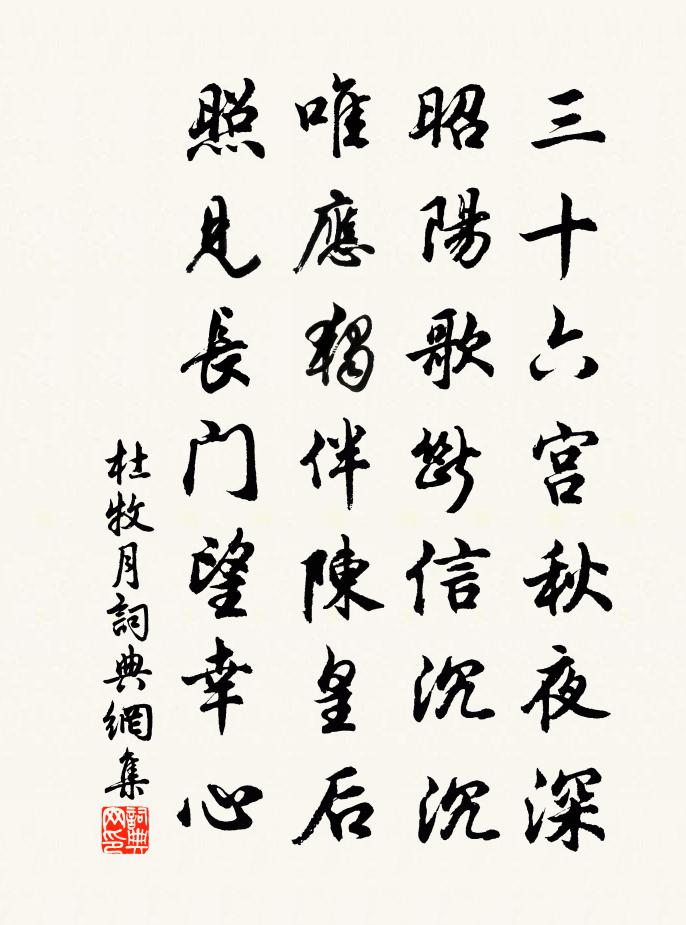 三十六宮秋夜深
昭陽歌斷信沉沉
唯應獨伴陳皇后
照見長门望幸心
杜牧月詞典網集
詞典网印